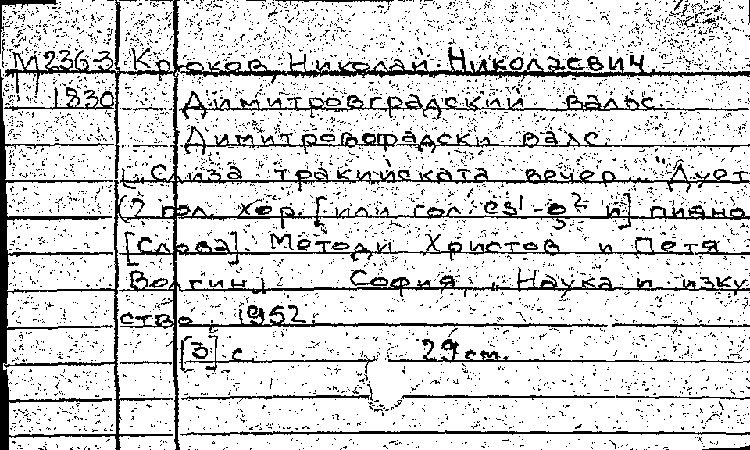 М2363 Крюков, Николай Николаевич.
1830 Димитровградский вальс.
Димитровградски валс.
["Слиза тракийската вечер..." Дует
(2 гол. хор. [или гол. es¹-e² и] пиано
[Слова]. Методи Христов и Петя
Волгин. София, "Наука и изку
ство, 1952.
[3] с. 29 cm.